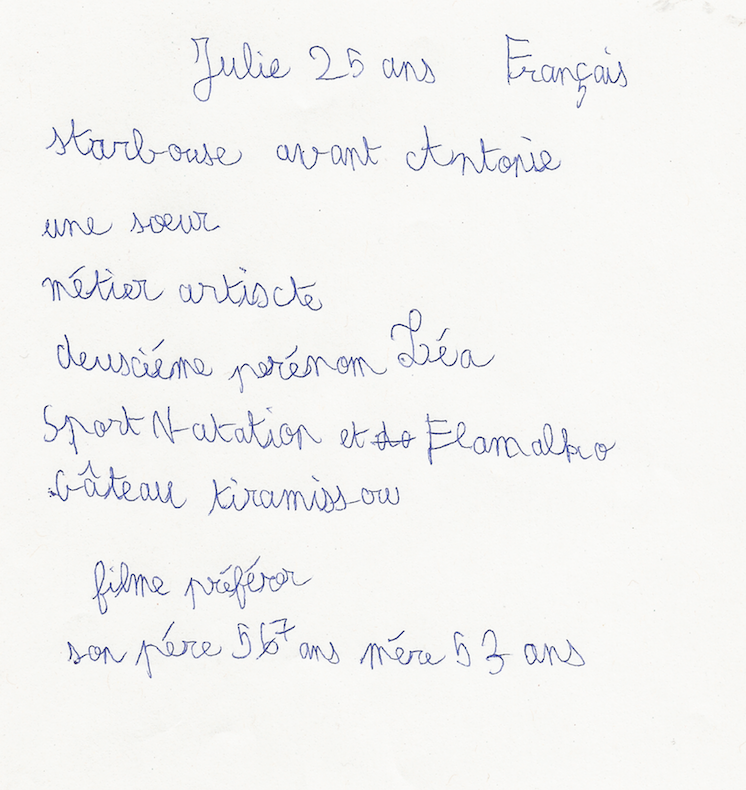 Julie 25 ans Français
starbouse avant Antonie
une sœur
métier artiscte
deuscième perénom Léa
Sport Natation et do Flamalko
Gâteau tiramissou
filme préférer
son père 567 ans mère 53 ans